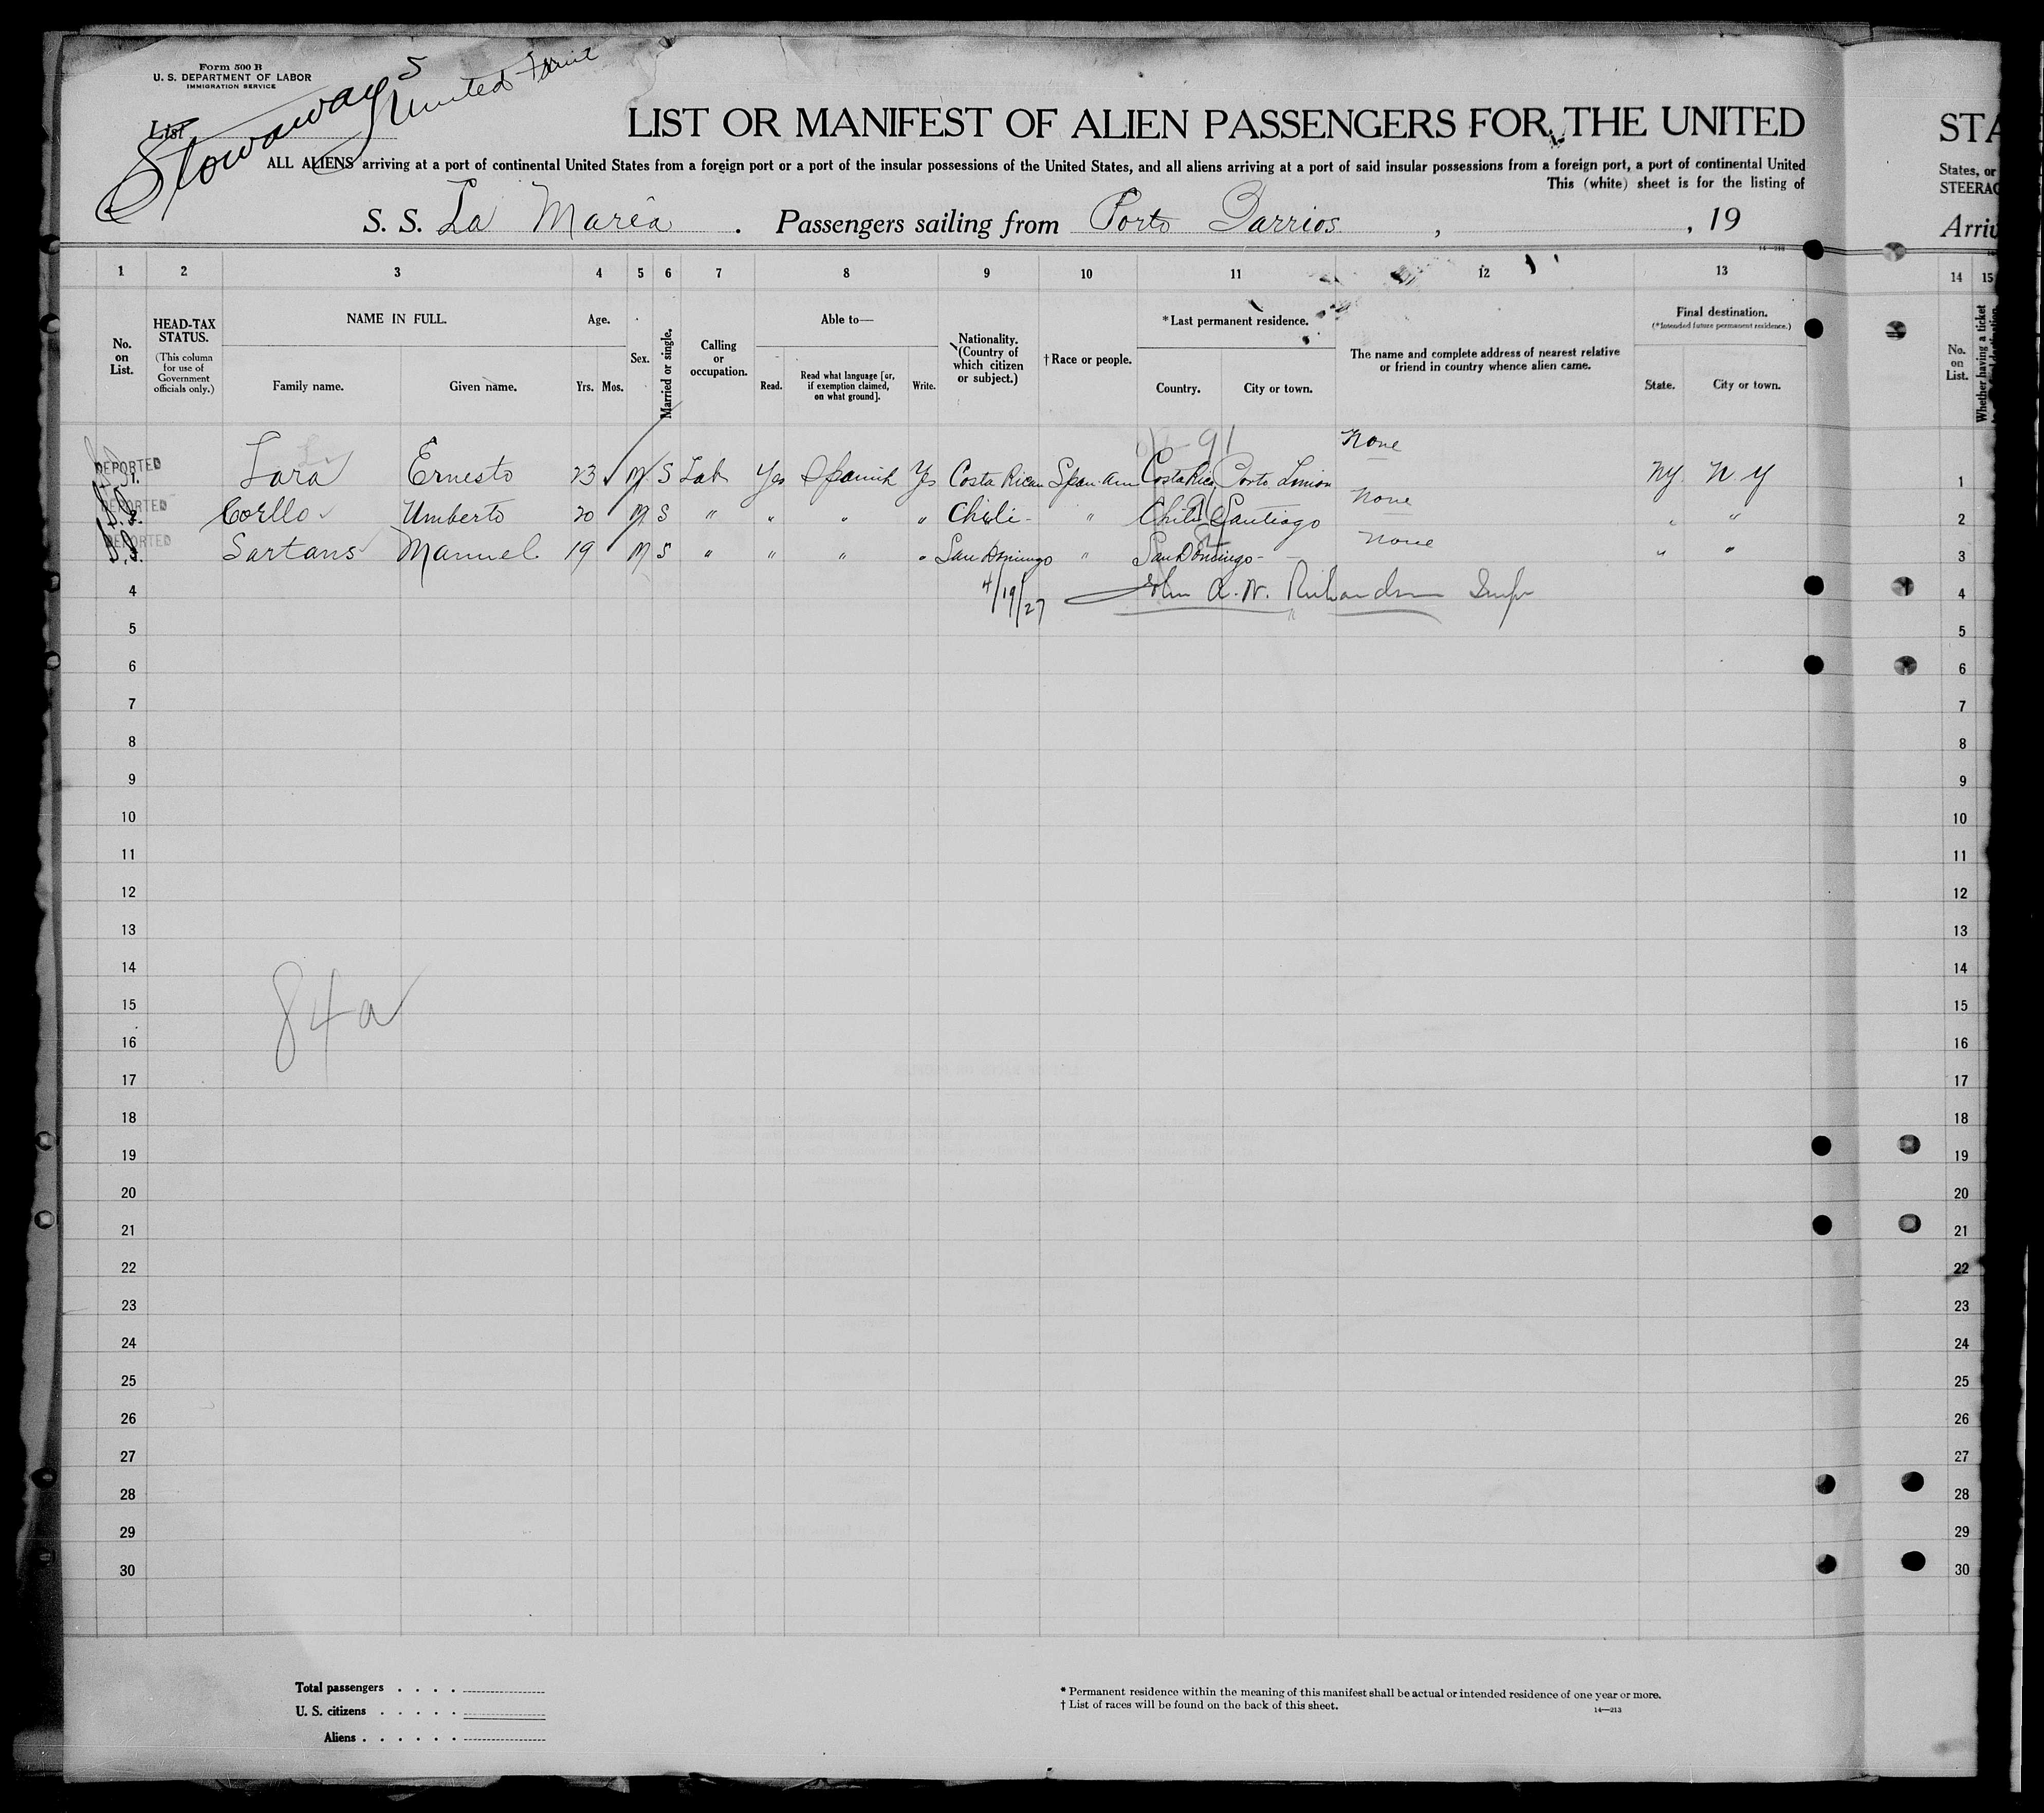 Form 500 B
U. S. DEPARTMENT OF LABOR
IMMIGRATION SERVICE
List
Stowaways
United Fruit
LIST OR MANIFEST OF ALIEN PASSENGERS FOR THE UNITED
STA
ALL ALIENS arriving at a port of continental United States from a foreign port or a port of the insular possessions of the United States, and all aliens arriving at a port of said insular possessions from a foreign port, a port of continental United
States, or
This (white) sheet is for the listing of
STEERAG
S. S. La Maria . Passengers sailing from Porto Barrios , , 19
Arriv
14—213
1 2 3 4 5 6 7 8 9 10 11 12 13 14 15
No. on List.
HEAD-TAX STATUS.
(This column for use of Government officials only.)
NAME IN FULL.
Family name. Given name.
Age.
Yrs. Mos.
Sex.
Married or single.
Calling or occupation.
Able to—
Read. Read what language [or, if exemption claimed, on what ground]. Write.
Nationality. (Country of which citizen or subject.)
† Race or people.
* Last permanent residence.
Country. City or town.
The name and complete address of nearest relative or friend in country whence alien came.
Final destination.
(* Intended future permanent residence.)
State. City or town.
No. on List.
Whether having a ticket
91
DEPORTED 1 Lara Ernesto 23 M S Lab Yes Spanish Yes Costa Rican Span. Am Costa Rica Porto Limon None NY. N Y 1
DEPORTED 2 Coello Umberto 20 M S " " " " Chili - " Chili Santiago None " " 2
DEPORTED 3 Sartans Manuel 19 M S " " " " San Domingo " San Domingo - None " " 3
4 4/19/27 John A. W. Richardson Insp 4
5 5
6 6
7 7
8 8
9 9
10 10
11 11
12 12
13 13
14 14
84a
15 15
16 16
17 17
18 18
19 19
20 20
21 21
22 22
23 23
24 24
25 25
26 26
27 27
28 28
29 29
30 30
Total passengers . . . .
U. S. citizens . . . . .
Aliens . . . . . .
* Permanent residence within the meaning of this manifest shall be actual or intended residence of one year or more.
† List of races will be found on the back of this sheet.
14—213